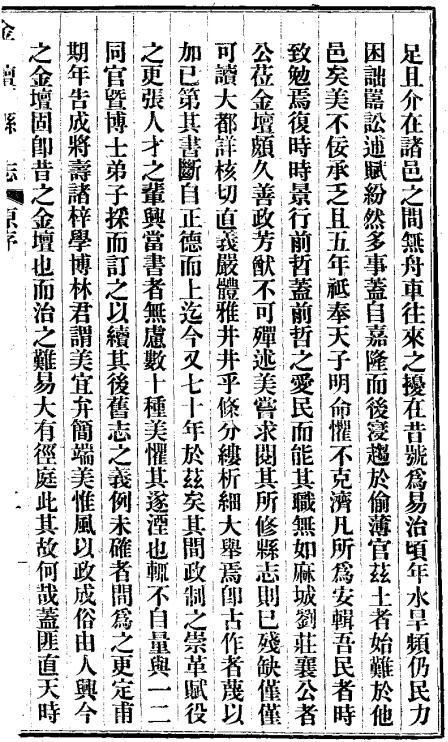 足且介在諸邑之間無舟車往來之擾在昔號爲易治頃年水旱頻仍民力
困詘嚚訟逋賦紛然多事蓋自嘉隆而後寖趨於偷薄官茲土者始難於他
邑矣美不佞承乏且五年祗奉天子明命懼不克濟凡所爲安輯吾民者時
致勉焉復時時景行前哲蓋前哲之愛民而能其職無如麻城劉莊襄公者
公莅金壇頗久善政芳猷不可殫述美嘗求閱其所修縣志則已殘缺僅僅
可讀大都詳核切直義嚴體雅井井乎條分縷析細大舉焉卽古作者蔑以
加已第其書斷自正德而上迄今又七十年於茲矣其間政制之崇革賦役
之更張人才之輩興當書者無慮數十種美懼其遂湮也輒不自量與一二
同官暨博士弟子採而訂之以續其後舊志之義例未確者間爲之更定甫
期年告成將壽諸梓學博林君謂美宜弁簡端美惟風以政成俗由人興今
之金壇固卽昔之金壇也而治之難易大有徑庭此其故何哉蓋匪直天時
金壇縣志 原序